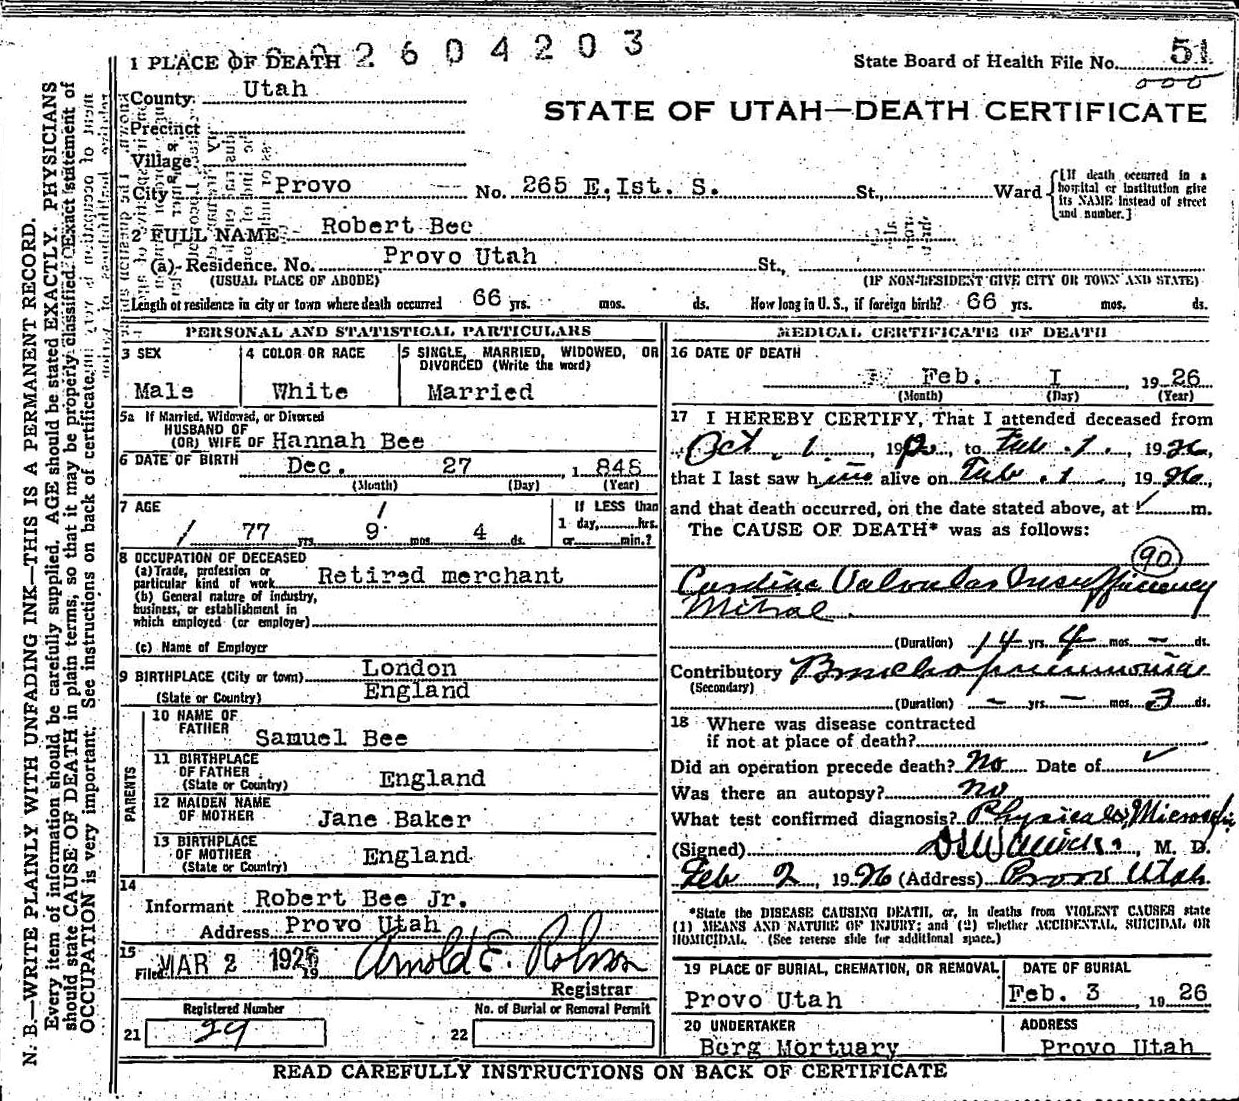 2604203
1 PLACE OF DEATH
State Board of Health File No. 51
000
County Utah
STATE OF UTAH—DEATH CERTIFICATE
Precinct
or
Village
or
City Provo No. 265 E. Ist. S. St., Ward
[If death occurred in a hospital or institution give its NAME instead of street and number.]
2 FULL NAME Robert Bee
(a) Residence. No. Provo Utah St.,
(USUAL PLACE OF ABODE) (IF NON-RESIDENT GIVE CITY OR TOWN AND STATE)
Length of residence in city or town where death occurred 66 yrs. mos. ds. How long in U. S., if foreign birth? 66 yrs. mos. ds.
PERSONAL AND STATISTICAL PARTICULARS
3 SEX
Male
4 COLOR OR RACE
White
5 SINGLE, MARRIED, WIDOWED, OR
DIVORCED (Write the word)
Married
5a If Married, Widowed, or Divorced
HUSBAND OF
(OR) WIFE OF Hannah Bee
6 DATE OF BIRTH Dec. 27 1848
(Month) (Day) (Year)
7 AGE
77 yrs 9 mos. 4 ds.
If LESS than
1 day, hrs.
or min.?
8 OCCUPATION OF DECEASED
(a) Trade, profession or
particular kind of work Retired merchant
(b) General nature of industry,
business, or establishment in
which employed (or employer)
(c) Name of Employer
9 BIRTHPLACE (City or town) London
(State or Country) England
PARENTS
10 NAME OF
FATHER
Samuel Bee
11 BIRTHPLACE
OF FATHER
(State or Country) England
12 MAIDEN NAME
OF MOTHER Jane Baker
13 BIRTHPLACE
OF MOTHER
(State or Country) England
14
Informant Robert Bee Jr.
Address Provo Utah
15
Filed MAR 2 1926 19
Arnold E. Robison
Registrar
Registered Number
21 29
No. of Burial or Removal Permit
22
MEDICAL CERTIFICATE OF DEATH
16 DATE OF DEATH
Feb. I 1926
(Month) (Day) (Year)
17 I HEREBY CERTIFY, That I attended deceased from
Oct. 1. 1912, to Feb. 1. 1926,
that I last saw him alive on Feb. 1, 1926,
and that death occurred, on the date stated above, at m.
The CAUSE OF DEATH* was as follows:
90
Cardiac Valvular Insufficiency
Mitral
(Duration) 14 yrs. 4 mos. – ds.
Contributory Bronchopneumonia
(Secondary)
(Duration) – yrs. – mos. 3 ds.
18 Where was disease contracted
if not at place of death?
Did an operation precede death? No Date of
Was there an autopsy? no
What test confirmed diagnosis? Physical &
(Signed) M. D.
Feb 2, 1926 (Address) Provo Utah
*State the DISEASE CAUSING DEATH, or, in deaths from VIOLENT CAUSES state
(1) MEANS AND NATURE OF INJURY; and (2) whether ACCIDENTAL, SUICIDAL OR
HOMICIDAL. (See reverse side for additional space.)
19 PLACE OF BURIAL, CREMATION, OR REMOVAL
Provo Utah
DATE OF BURIAL
Feb. 3, 1926
20 UNDERTAKER
Berg Mortuary
ADDRESS
Provo Utah
READ CAREFULLY INSTRUCTIONS ON BACK OF CERTIFICATE
N. B.—WRITE PLAINLY WITH UNFADING INK—THIS IS A PERMANENT RECORD.
Every item of information should be carefully supplied. AGE should be stated EXACTLY. PHYSICIANS
should state CAUSE OF DEATH in plain terms, so that it may be properly classified. Exact statement of
OCCUPATION is very important. See instructions on back of certificate.